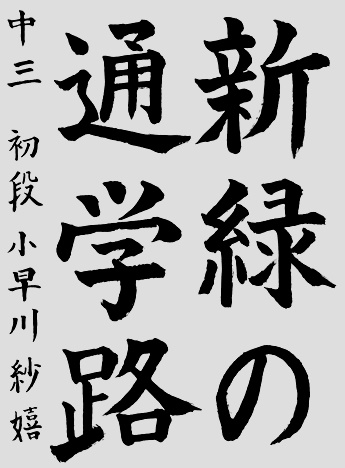 新緑の
通学路
中三 初段 小早川 紗嬉